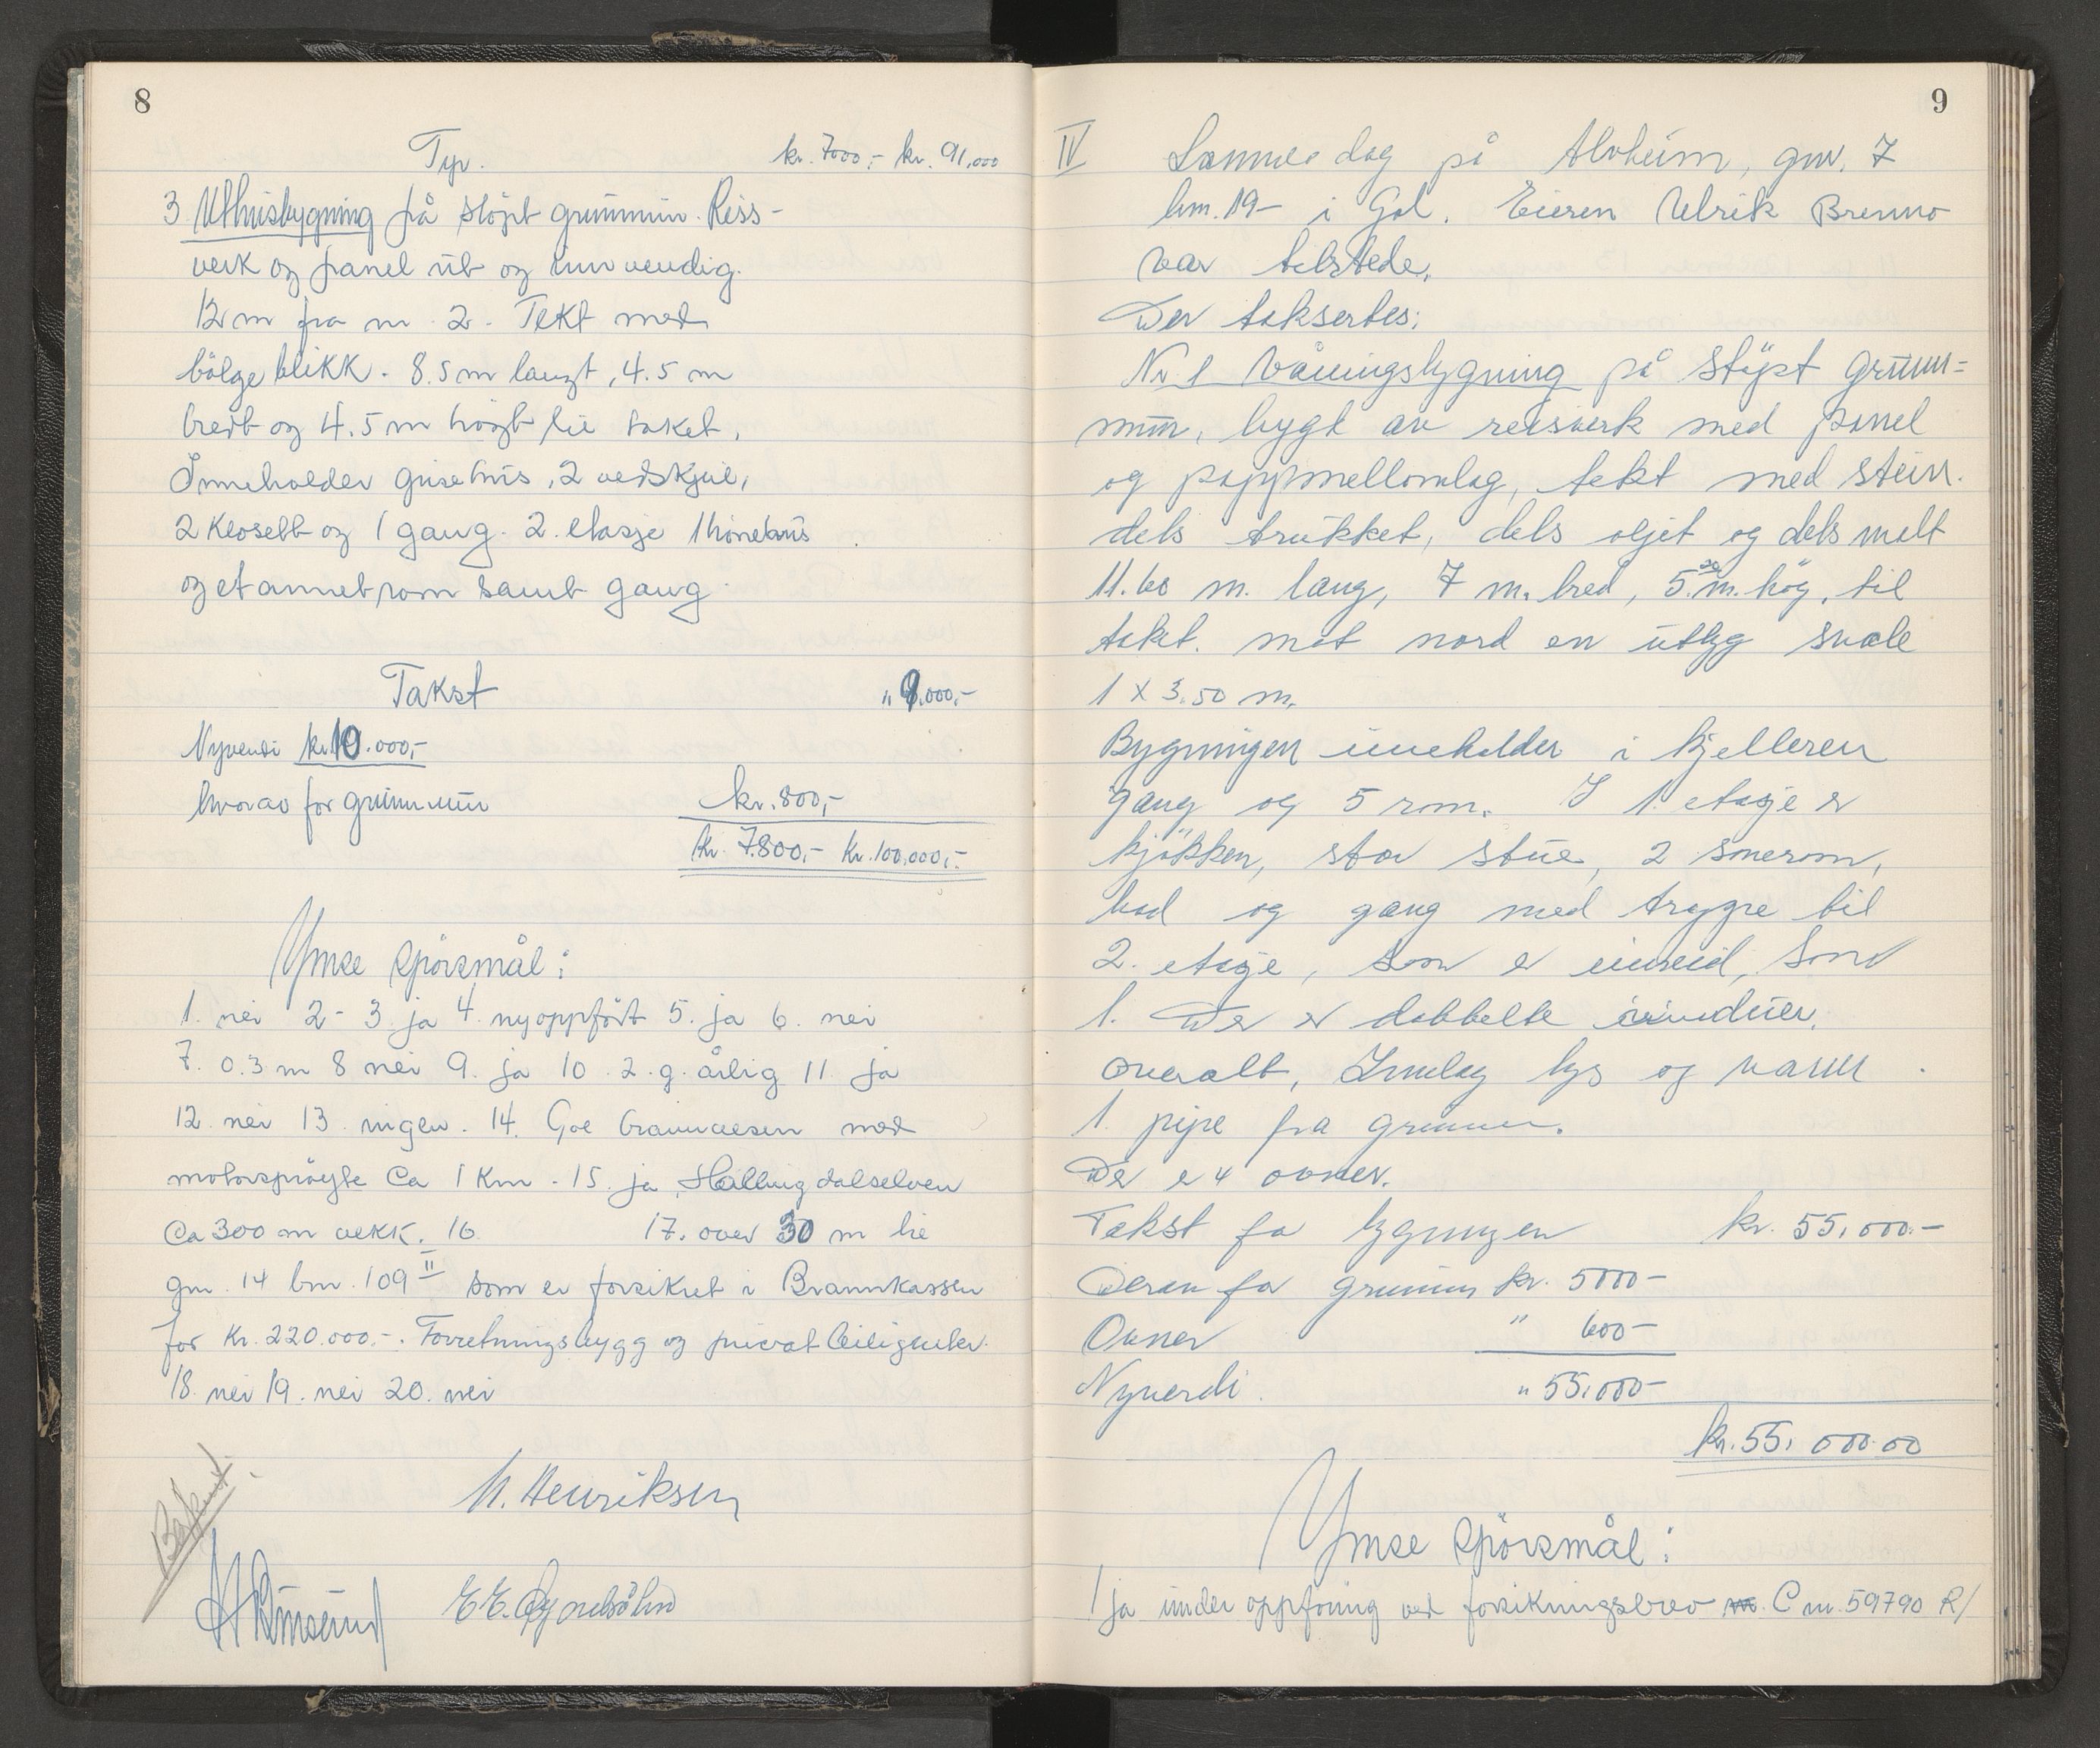 8
Tyr. kr. 7000,- kr. 91,000
3. Uthusbygning på støpt grunnmur. Reis-
verk og panel ut og innvendig.
12 m fra nr. 2. Tekt med
bölgeblikk. 8.5 m langt, 4.5 m
bredt og 4.5 m högt til taket.
Inneholder grisehus, 2 vedskjul,
2 klosett og 1 gang. 2. etasje 1 hönehus
og et annet rom samt gang.
Takst " 9.000,-
Nyverdi kr 10.000,-
hvorav for grunnmur kr. 800,-
kr. 7.800,- kr. 100.000,-
Ymse spörsmål:
1. nei 2 - 3. ja 4. nyoppfört 5. ja 6. nei
7. 0.3 m 8 nei 9. ja 10. 2. g. årlig 11 ja
12. nei 13. ingen. 14. Gol brannvesen med
motorspröyte ca 1 km. 15. ja, Hallingdalselven
ca 300 m vekk. 16. 17. over 30 m til
gnr. 14 bnr. 109 II som er forsikret i Brannkassen
for kr. 220.000.-. Forretningsbygg og privat leiligheter.
18. nei 19. nei 20. nei
N. Henriksen
9
IV Samme dag på Alvheim, gnr. 7
bnr. 19- i Gol. Eieren Ulrik Brenno
var tilstede.
Der taksertes:
Nr. 1 Våningsbygning på stöpt grunn=
mur, bygt av reisverk med panel
og pappmellomlag, tekt med stein.
dels trukket, dels oljet og dels malt
11.60 m. lang, 7 m. bred, 5.20 m. høg, til
taket. mot nord en utbygg svale
1 x 3.50 m.
Bygningen inneholder i kjelleren
gang og 5 rom. I 1. etasje er
kjökken, stor stue, 2 soverom,
bad og gang med trappe til
2. etasje, som er innreid, som
1. Der er dobbelte vinduer.
overalt, Innlag lys og vann.
1. pipe fra grunnen.
Der er 4 ovner.
Takst for bygningen kr. 55,000.-
Derav for grunnmur kr. 5000-
Ovner " 600-
Nyverdi. " 55,000-
kr. 55,000.00
Ymse spörsmål:
1 ja under oppföring ved forsikringsbrev C nr. 59790 R/